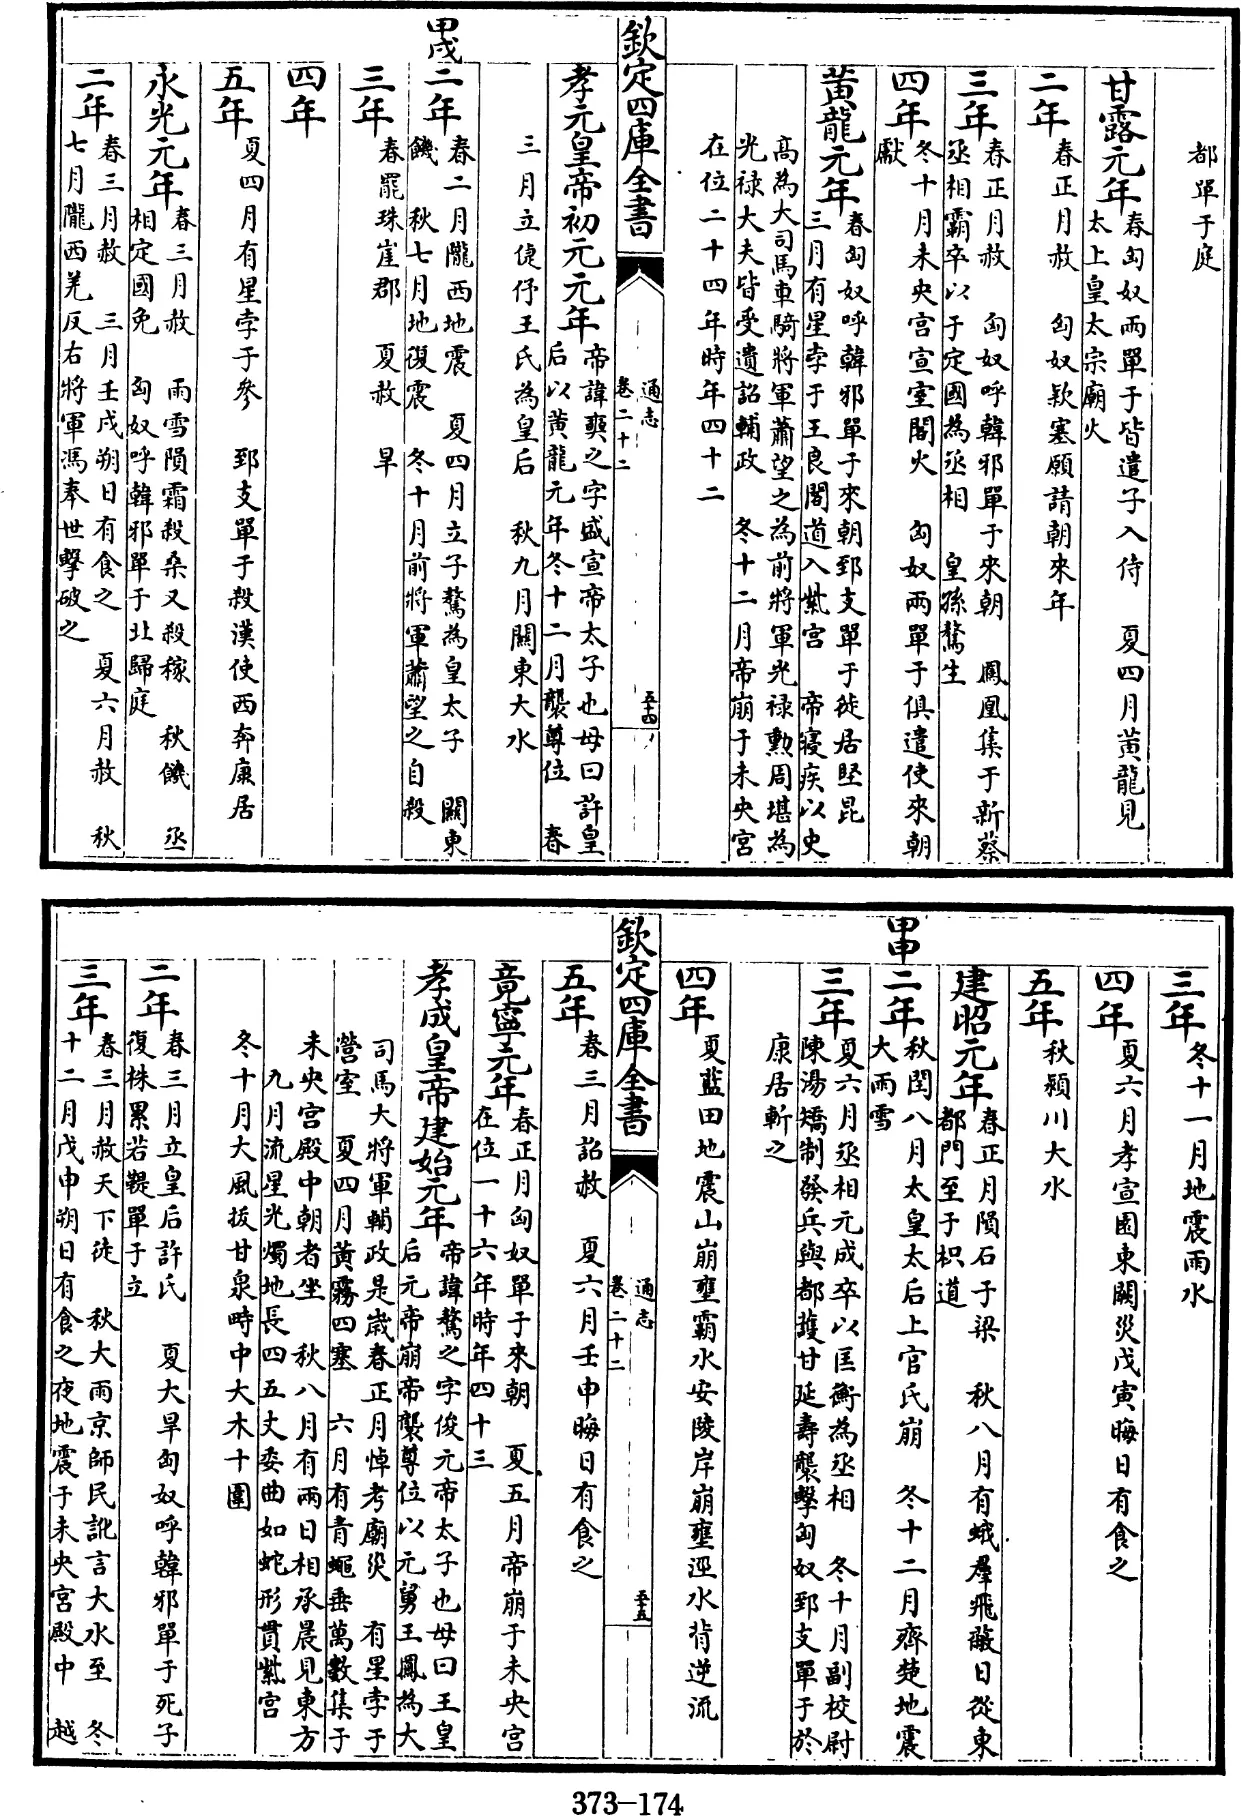 都單于庭
甘露元年
春匈奴兩單于皆遣子入侍　夏四月黃龍見
太上皇太宗廟火
二年
春正月赦　匈奴欵塞願請朝來年
三年
春正月赦　匈奴呼韓邪單于來朝　鳳凰集于新蔡
丞相霸卒以于定國為丞相　皇孫驁生
四年
冬十月未央宫宣室閣火　匈奴兩單于俱遣使來朝
獻
黃龍元年
春匈奴呼韓邪單于來朝郅支單于徙居堅昆
三月有星孛于王良閣道入紫宫　帝寢疾以史
高為大司馬車騎將軍蕭望之為前將軍光禄勲周堪為
光禄大夫皆受遺詔輔政　冬十二月帝崩于未央宫
在位二十四年時年四十二
欽定四庫全書
通志
卷二十二
五十四
孝元皇帝初元元年
帝諱奭之字盛宣帝太子也母曰許皇
后以黃龍元年冬十二月襲尊位　春
三月立倢伃王氏為皇后　秋九月關東大水
甲戌
二年
春二月隴西地震　夏四月立子驁為皇太子　關東
饑　秋七月地復震　冬十月前將軍蕭望之自殺
三年
春罷珠崖郡　夏赦　旱
四年
五年
夏四月有星孛于參　郅支單于殺漢使西奔康居
永光元年
春三月赦　雨雪隕霜殺桑又殺稼　秋饑　丞
相定國免　匈奴呼韓邪單于北歸庭
二年
春三月赦　三月壬戌朔日有食之　夏六月赦　秋
七月隴西羌反右將軍馮奉世擊破之
三年
冬十一月地震雨水
四年
夏六月孝宣園東闕災戊寅晦日有食之
五年
秋潁川大水
建昭元年
春正月隕石于梁　秋八月有蛾羣飛蔽日從東
都門至于枳道
甲申
二年
秋閏八月太皇太后上官氏崩　冬十二月齊楚地震
大雨雪
三年
夏六月丞相元成卒以匡衡為丞相　冬十月副校尉
陳湯矯制發兵與都護甘延壽襲擊匈奴郅支單于於
康居斬之
四年
夏藍田地震山崩壅霸水安陵岸崩壅涇水背逆流
欽定四庫全書
通志
卷二十二
五十五
五年
春三月詔赦　夏六月壬申晦日有食之
竟寧元年
春正月匈奴單于來朝　夏五月帝崩于未央宫
在位一十六年時年四十三
孝成皇帝建始元年
帝諱驁之字俊元帝太子也母曰王皇
后元帝崩帝襲尊位以元舅王鳳為大
司馬大將軍輔政是歲春正月悼考廟災　有星孛于
營室　夏四月黃霧四塞　六月有青蠅垂萬數集于
未央宫殿中朝者坐　秋八月有兩日相承晨見東方
九月流星光燭地長四五丈委曲如蛇形貫紫宫
冬十月大風拔甘泉畤中大木十圍
二年
春三月立皇后許氏　夏大旱匈奴呼韓邪單于死子
復株累若鞮單于立
三年
春三月赦天下徒　秋大雨京師民訛言大水至　冬
十二月戊申朔日有食之夜地震于未央宫殿中　越
373-174